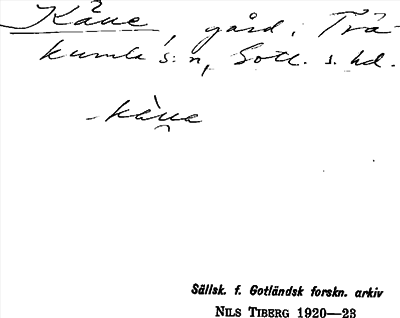 Kåue, gård, Trä-
kumla s:n, Gotl. s. hd.
-kàua
Sällsk. f. Gotländsk forskn. arkiv
NILS TIBERG 1920—23